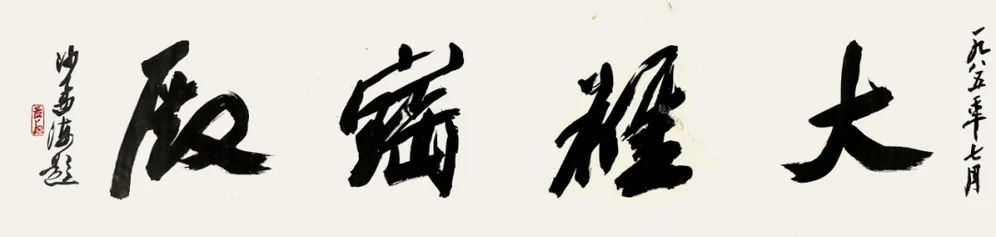 一九八五年七月
大雄寶殿
沙孟海題